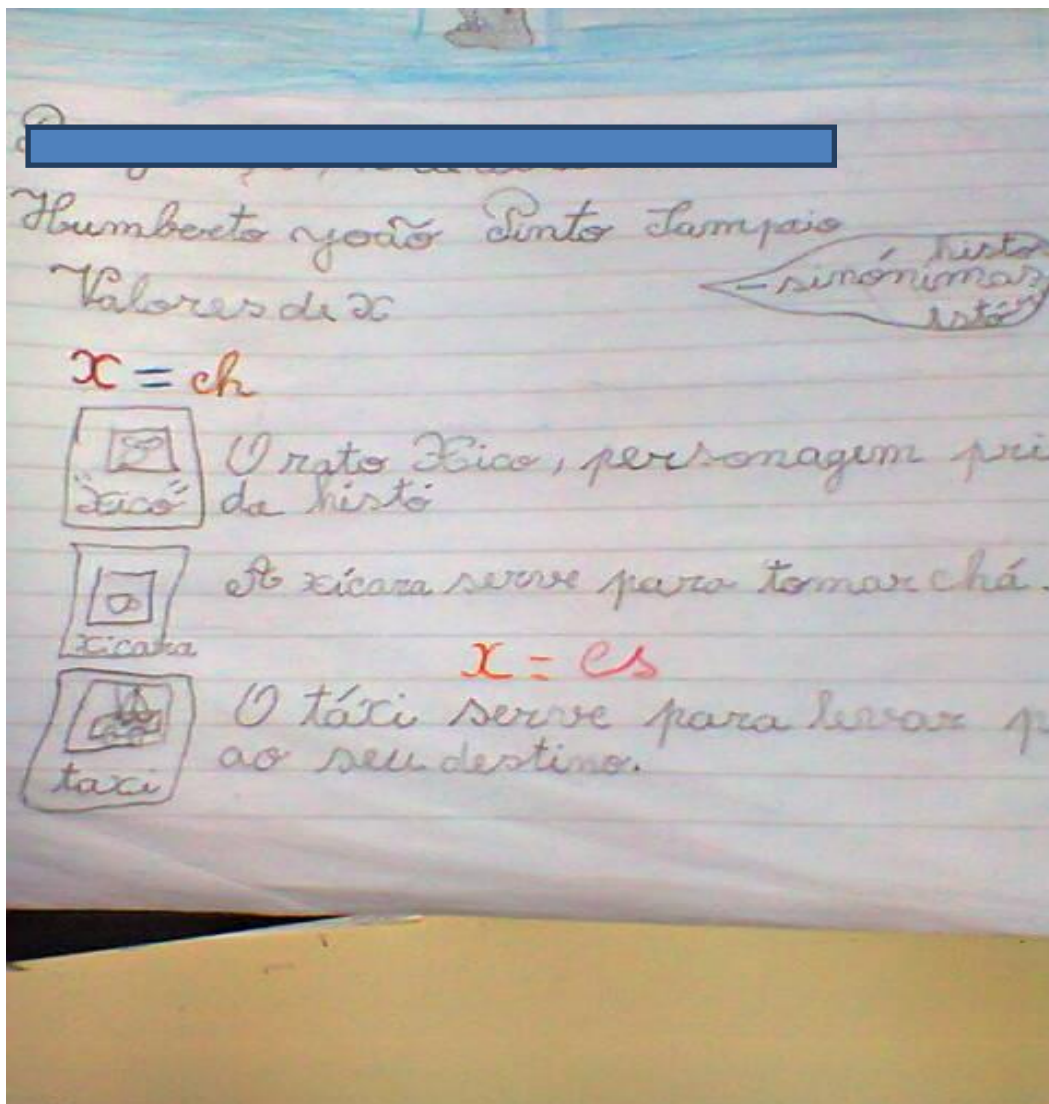 Humberto João Pinto Sampaio
Valores de x
histo
- sinónimas
istó
x = ch
"Xico"
O rato Xico, personagem pri
da histó
xicara
A xícara serve para tomar chá.
x = cs
taxi
O táxi serve para levar p
ao seu destino.